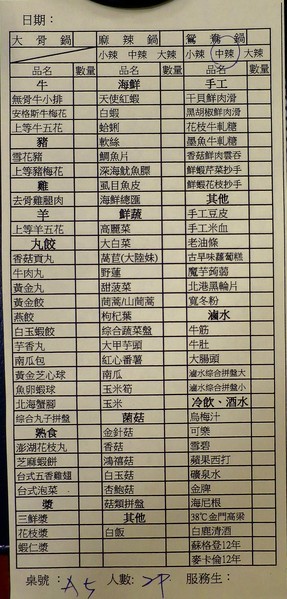 日期：
大骨鍋 麻辣鍋 鴛鴦鍋
小辣 中辣 大辣 小辣 中辣 大辣
品名 數量 品名 數量 品名 數量
牛 海鮮 手工
無骨牛小排 天使紅蝦 干貝鮮肉滑
安格斯牛梅花 白蝦 黑胡椒鮮肉滑
上等牛五花 蛤蜊 花枝牛軋糖
豬 軟絲 墨魚牛軋糖
雪花豬 鯛魚片 香菇鮮肉雲吞
上等豬梅花 深海魷魚膘 鮮蝦芹菜抄手
雞 虱目魚皮 鮮蝦花枝抄手
去骨雞腿肉 海鮮總匯 其他
羊 鮮蔬 手工豆皮
上等羊五花 高麗菜 手工米血
丸餃 大白菜 老油條
香菇貢丸 萵苣(大陸妹) 古早味蘿蔔糕
牛肉丸 野蓮 魔芋蒟蒻
黃金丸 甜菠菜 北港黑輪片
黃金餃 茼蒿/山茼蒿 寬冬粉
燕餃 枸杞葉 滷水
白玉蝦餃 綜合蔬菜盤 牛筋
芋香丸 大甲芋頭 牛肚
南瓜包 紅心番薯 大腸頭
黃金芝心球 南瓜 滷水綜合拼盤大
魚卵蝦球 玉米筍 滷水綜合拼盤小
北海蟹腳 玉米 冷飲、酒水
綜合丸子拼盤 菌菇 烏梅汁
熟食 金針菇 可樂
澎湖花枝丸 香菇 雪碧
芝麻蝦餅 鴻禧菇 蘋果西打
台式五香雞翅 白玉菇 礦泉水
台式泡菜 杏鮑菇 金牌
漿 菇類拼盤 海尼根
三鮮漿 其他 38℃金門高梁
花枝漿 白飯 白鹿清酒
蝦仁漿 蘇格登12年
麥卡倫12年
桌號：A5 人數：2P 服務生：